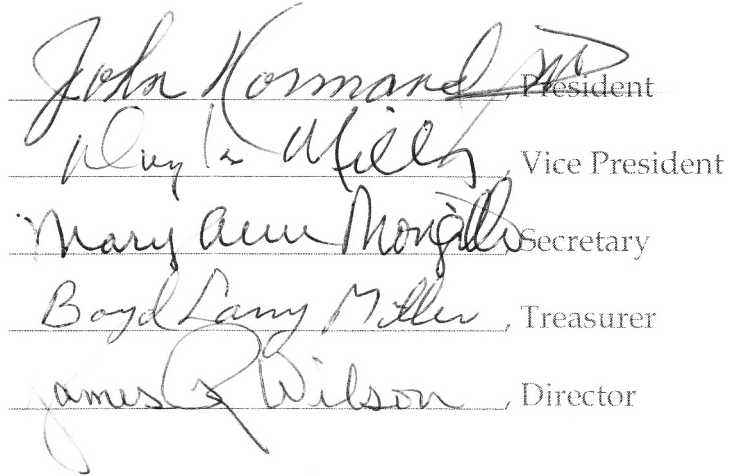 John Normand, President
Mills, Vice President
Mary Ann Mongillo Secretary
Boyd Larry Miller, Treasurer
James R Wilson, Director